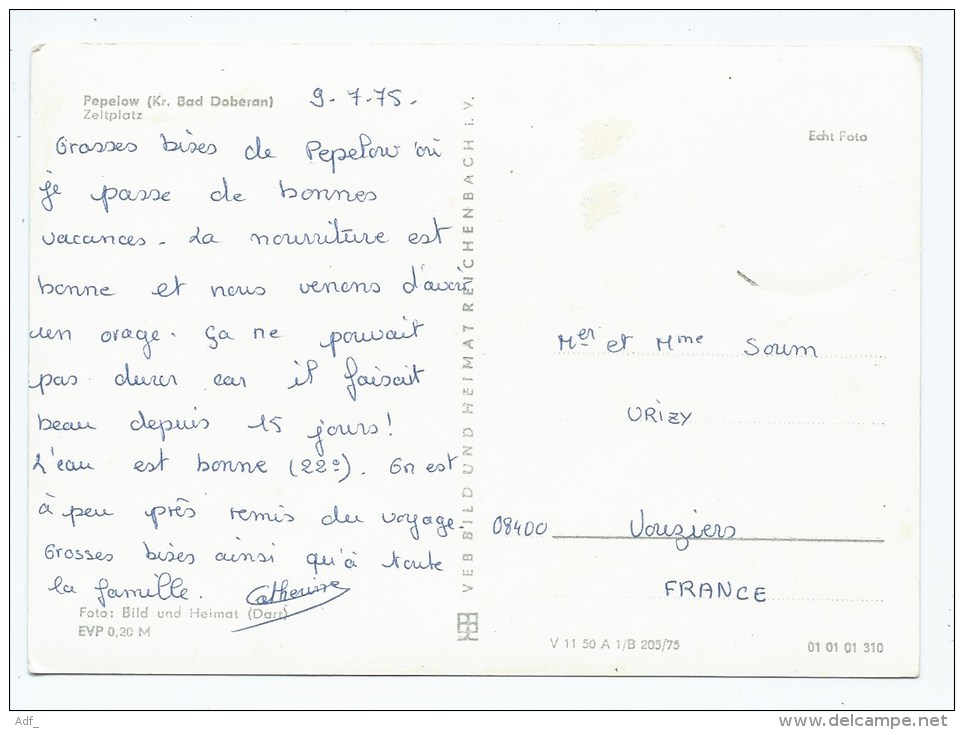 Pepelow (Kr. Bad Doberan)
Zeltplatz
9.7.75.
Grosses bises de Pepelow où
je passe de bonnes
vacances. La nourriture est
bonne et nous venons d'avoir
un orage. Ça ne pouvait
pas durer car il faisait
beau depuis 15 jours!
L'eau est bonne (22°). On est
à peu près remis du voyage.
Grosses bises ainsi qu'à toute
la famille. Catherine
Foto: Bild und Heimat (Dart)
EVP 0,20 M
VEB BILD UND HEIMAT REICHENBACH I. V.
Echt Foto
Mer et Mme Soum
URIZY
08400 Vouziers
FRANCE
V 11 50 A 1/B 205/75
01 01 01 310
Adf_
www.delcampe.net